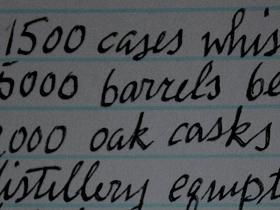 1500 cases whis
5000 barrels be
,000 oak casks
distillery equipt